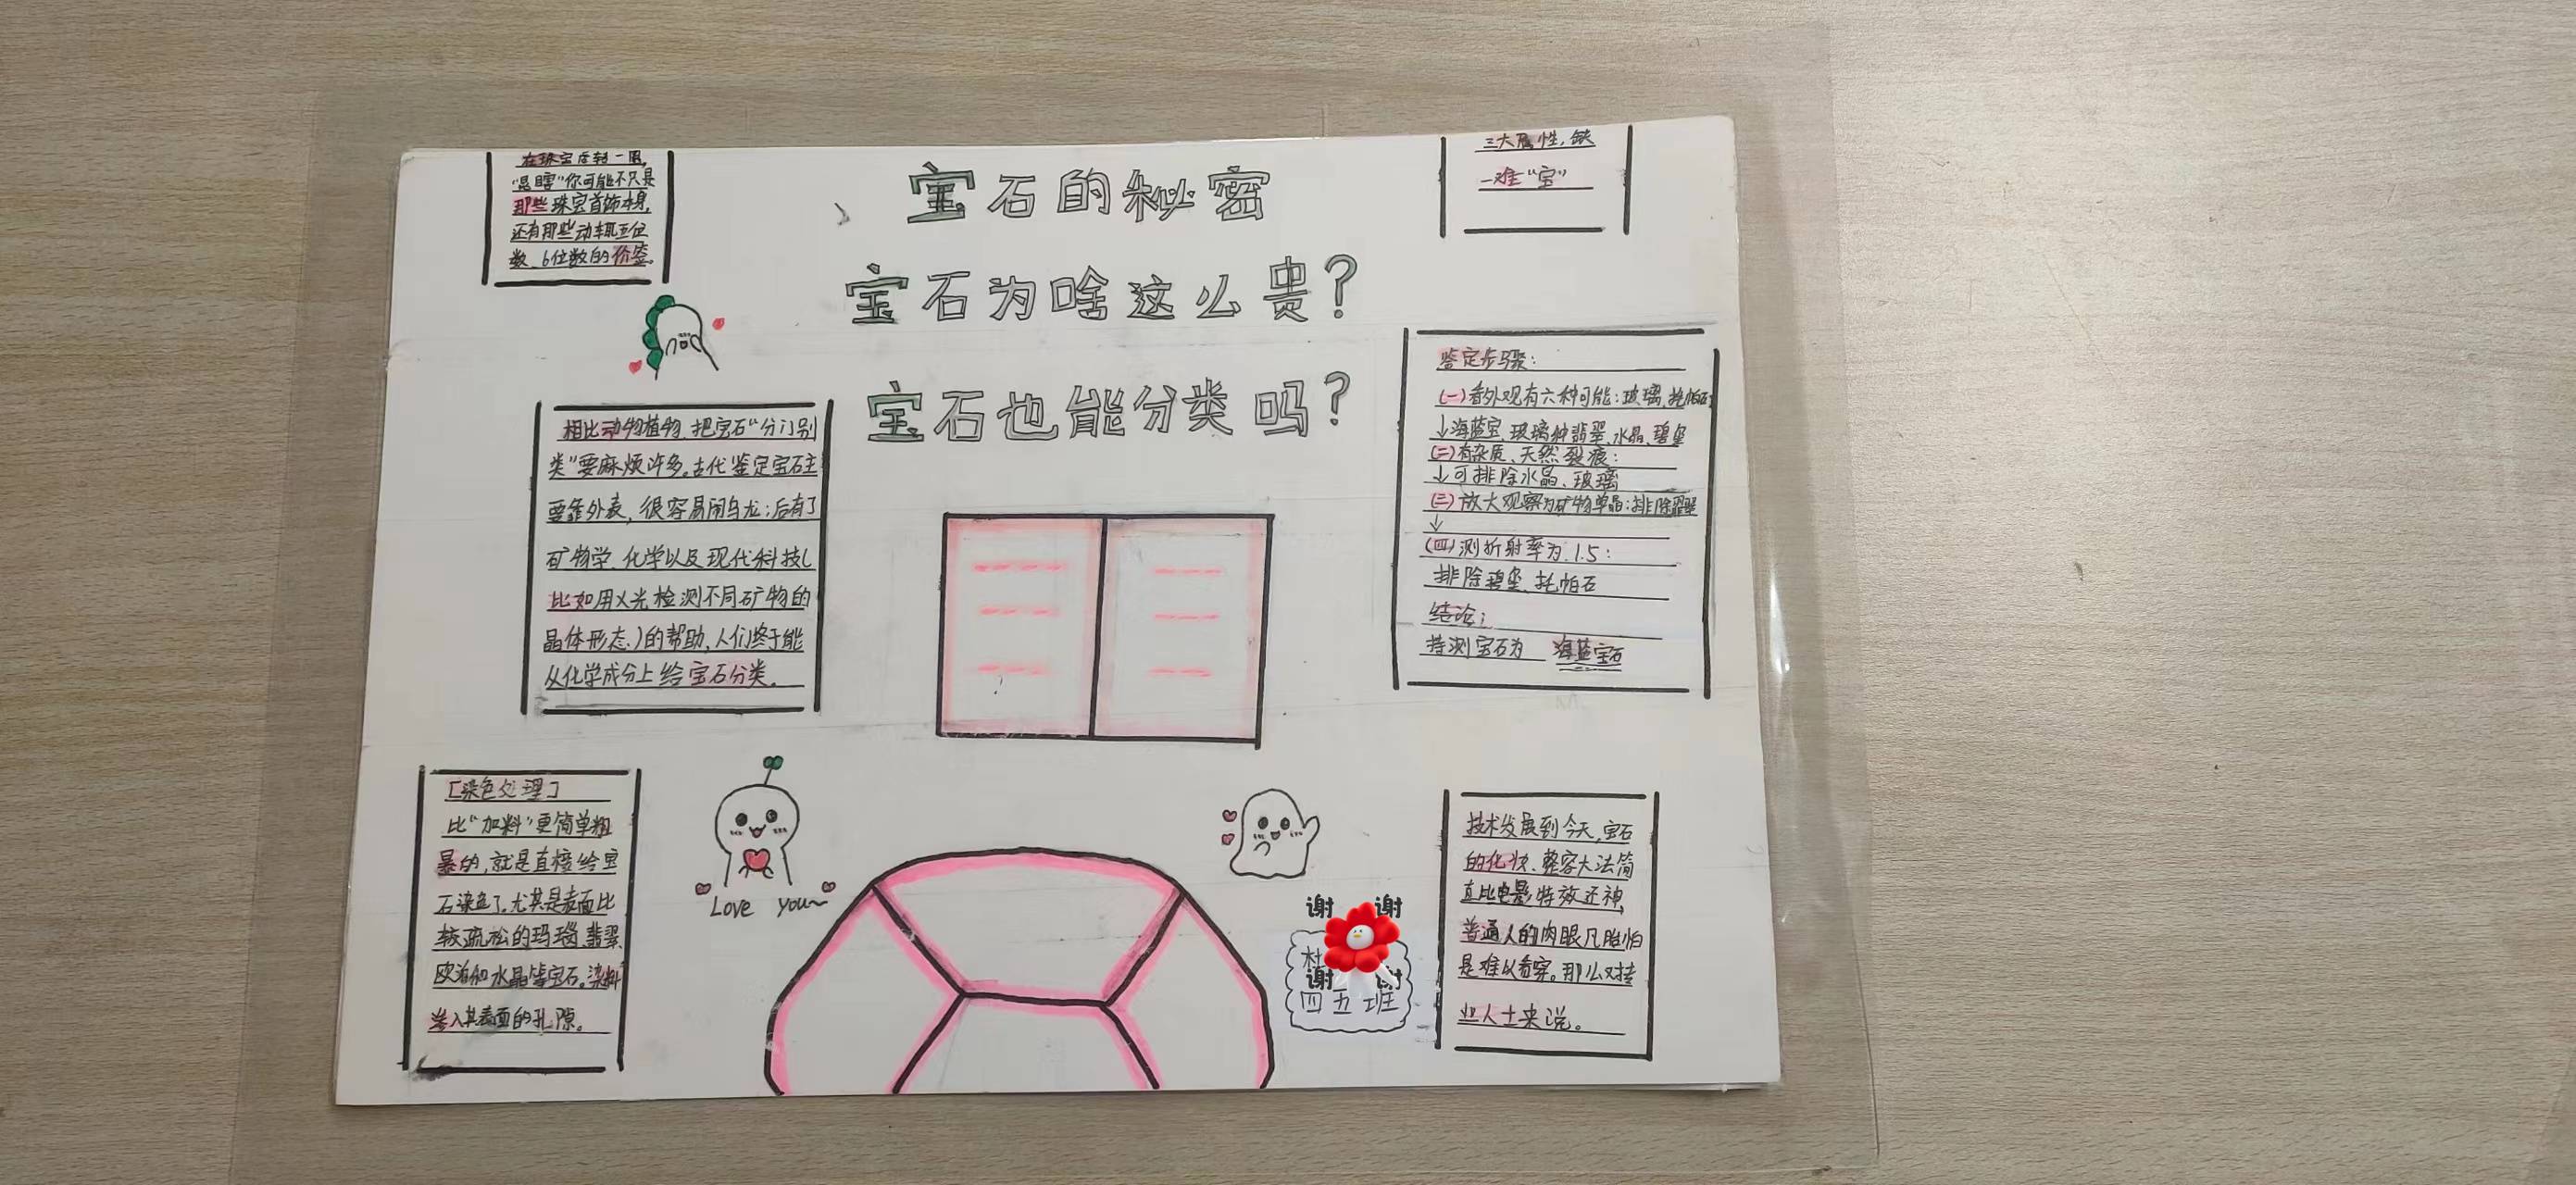 宝石的秘密
宝石为啥这么贵？
宝石也能分类吗？
在珠宝店转一圈，
“晃瞎”你可能不只是
那些珠宝首饰本身，
还有那些动辄五位
数、6位数的价签。
三大属性，缺
一难“宝”
相比动物植物，把宝石“分门别
类”要麻烦许多。古代鉴定宝石主
要靠外表，很容易闹乌龙；后有了
矿物学、化学以及现代科技(
比如用X光检测不同矿物的
晶体形态、)的帮助，人们终于能
从化学成分上给宝石分类。
鉴定步骤：
(一)看外观有六种可能：玻璃、托帕石
↓海蓝宝、玻璃种翡翠、水晶、碧玺
(二)有杂质、天然裂痕：
↓可排除水晶、玻璃
(三)放大观察为矿物单晶：排除翡翠
↓
(四)测折射率为1.5：
排除碧玺、托帕石
结论：
待测宝石为 海蓝宝石
[染色处理]
比“加料”更简单粗
暴的，就是直接给宝
石染色了。尤其是表面比
较疏松的玛瑙、翡翠、
欧泊和水晶等宝石。染料
渗入其表面的孔隙。
Love you~
谢 谢
杜
谢 谢
四五班
技术发展到今天，宝石
的化妆、整容大法简
直比电影特效还神，
普通人的肉眼凡胎怕
是难以看穿。那么对专
业人士来说。